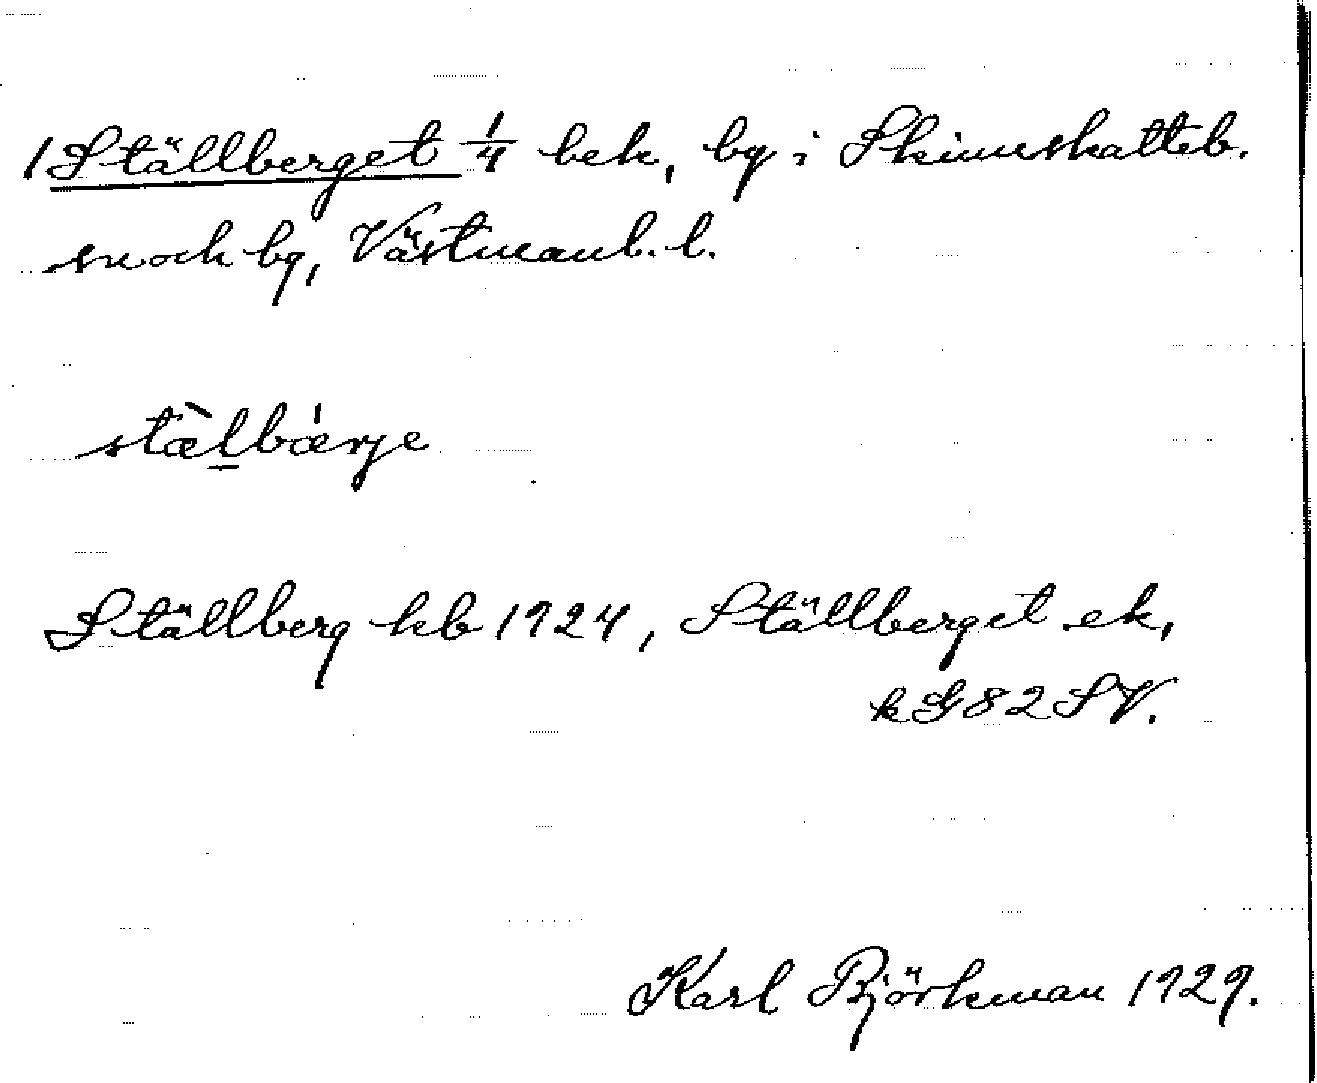 1 Ställberget 1/4 bek, by i Skinnskatteb.
sn och bg, Västmanl. l.
stæ̀lbǽrje
Ställberg kb 1924, Ställberget ek,
k G 82 SV.
Karl Björkman 1929.